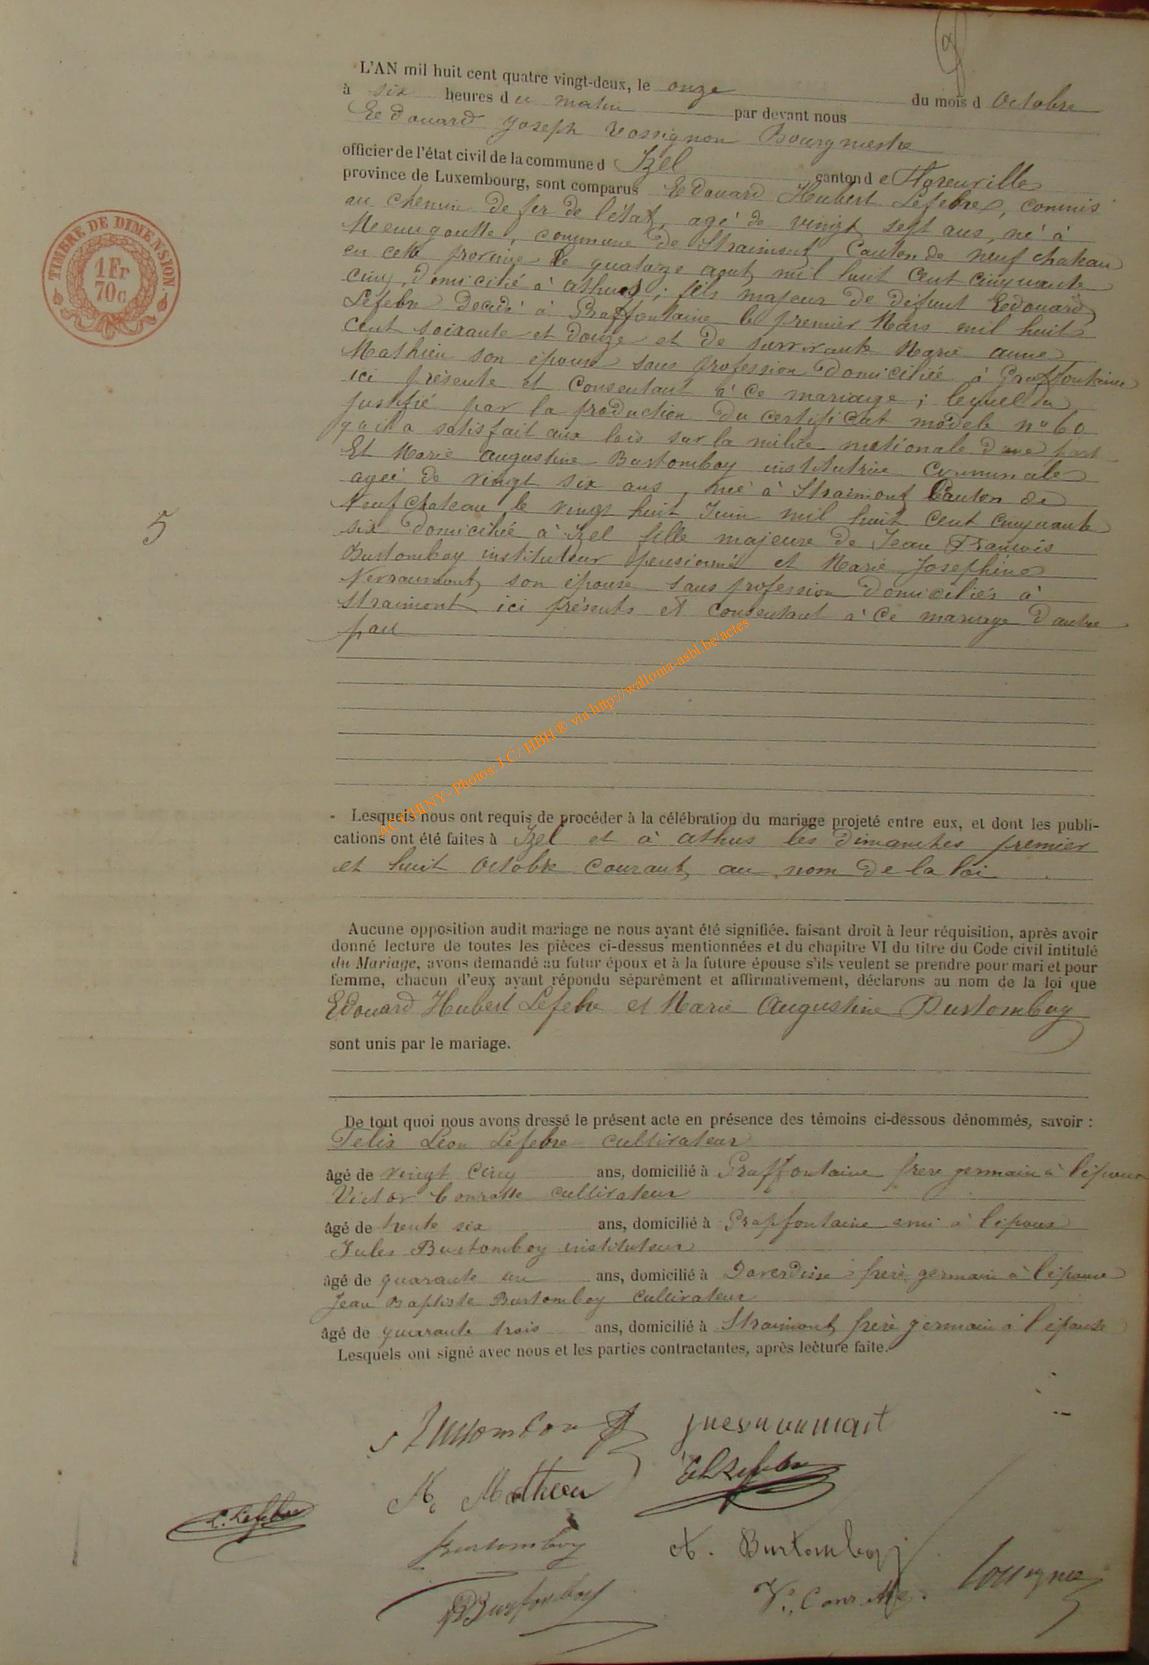 L'AN mil huit cent quatre vingt-deux, le onze du mois d octobre
à six heures du matin par devant nous
Edouard Joseph Rossignon Bourgmestre
officier de l'état civil de la commune d Izel canton de Florenville
province de Luxembourg, sont comparus Edouard Hubert Lefebre, commis
au chemin de fer de l'état, agé de vingt sept ans, né à
commune de Straimont, Canton de neufchateau
en cette province le quatorze aout mil huit cent cinquante
cinq, domicilié à athus; fils majeur de défunt Edouard
Lefebre décédé à Grapfontaine le premier Mars mil huit
cent soixante et douze et de survivante Marie anne
Mathieu son épouse sans profession domiciliée à Grapfontaine
ici présente et consentant à ce mariage; lequel a
justifié par la production du certificat modele no 60
qu'il a satisfait aux lois sur la milice nationale d'une part
Et Marie augustine Burtomboy institutrice communale
agée de vingt six ans, née à Straimont Canton de
Neufchateau le vingt huit Juin mil huit cent cinquante
six domiciliée à Izel fille majeure de Jean François
Burtomboy instituteur pensionné et Marie Josephine
son épouse sans profession domiciliés à
Straimont ici présents et consentant à ce mariage d'autre
part
Lesquels nous ont requis de procéder à la célébration du mariage projeté entre eux, et dont les publi-
cations ont été faites à Izel et à athus les dimanches premier
et huit octobre courant, au nom de la loi
Aucune opposition audit mariage ne nous ayant été signifiée, faisant droit à leur réquisition, après avoir
donné lecture de toutes les pièces ci-dessus mentionnées et du chapitre VI du titre du Code civil intitulé
du Mariage, avons demandé au futur époux et à la future épouse s'ils veulent se prendre pour mari et pour
femme, chacun d'eux ayant répondu séparément et affirmativement, déclarons au nom de la loi que
Edouard Hubert Lefebre et Marie Augustine Burtomboy
sont unis par le mariage.
De tout quoi nous avons dressé le présent acte en présence des témoins ci-dessous dénommés, savoir :
Felix Léon Lefebre cultivateur
âgé de vingt cinq ans, domicilié à Grapfontaine frere germain à l'époux
Victor Conrotte cultivateur
âgé de trente six ans, domicilié à Grapfontaine ami à l'époux
Jules Burtomboy instituteur
âgé de quarante un ans, domicilié à Daverdisse frere germain à l'épouse
Jean Baptiste Burtomboy cultivateur
âgé de quarante trois ans, domicilié à Straimont frere germain à l'épouse
Lesquels ont signé avec nous et les parties contractantes, après lecture faite.
M. Mathieu
L. Lefebre
Burtomboy
A. Burtomboy
V. Conrotte
JBurtomboy
TIMBRE DE DIMENSION
1 Fr
70c
5